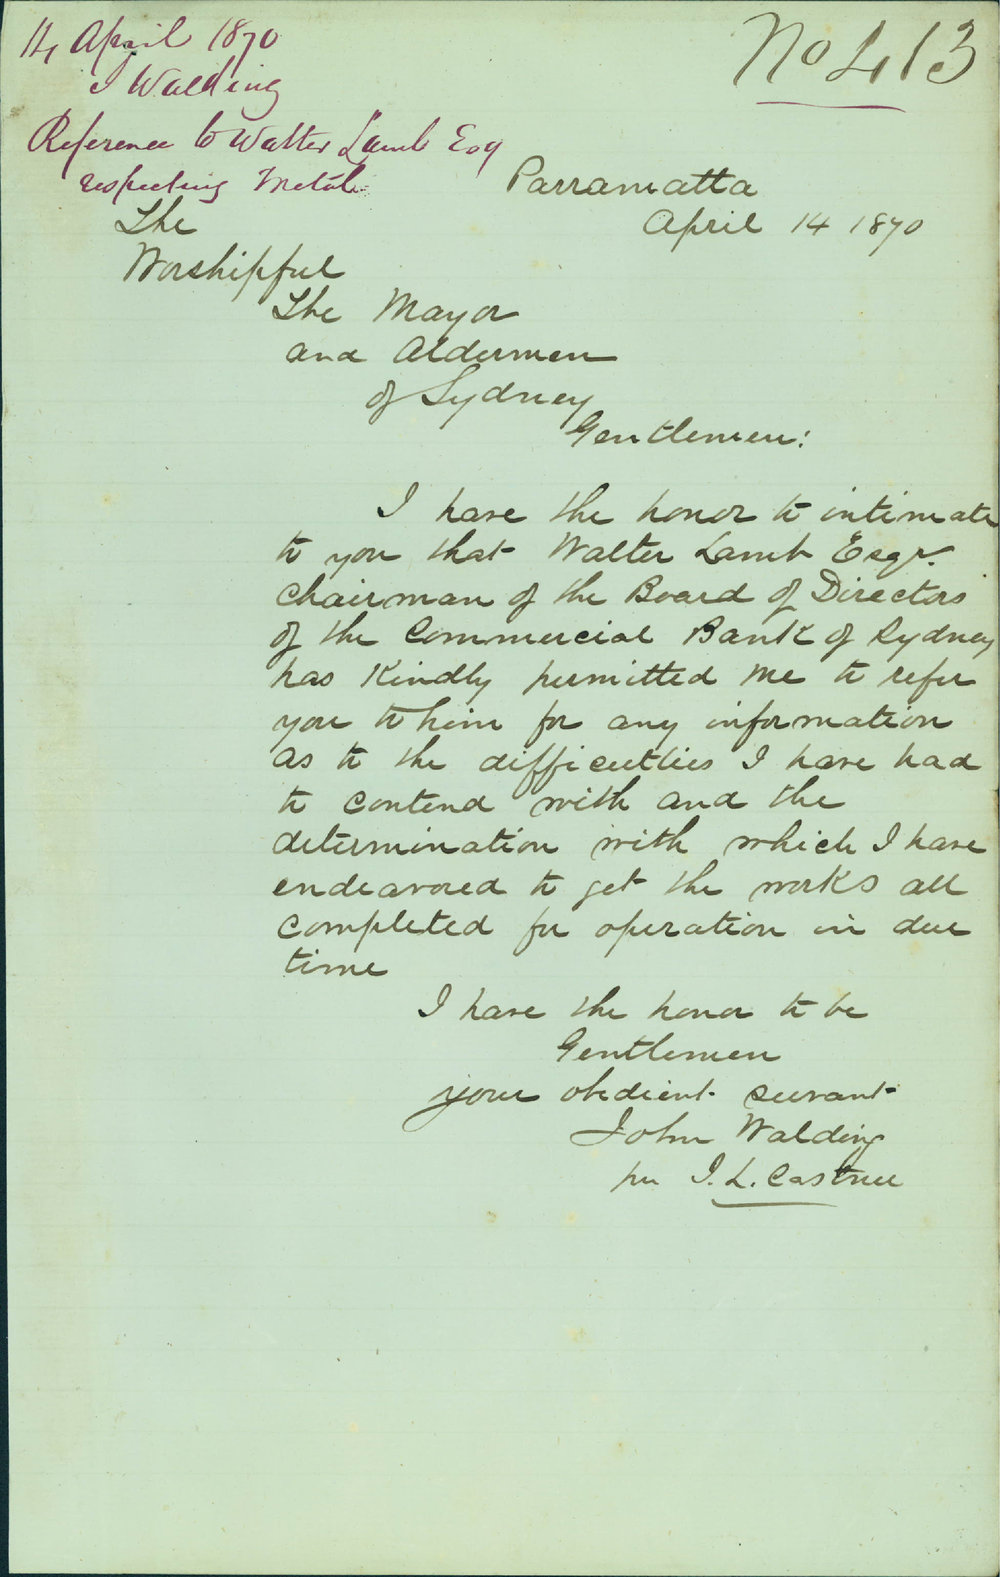 14 April 1870
J Walding
Reference to Walter Lamb Esq
respecting Metal
No 413
Parramatta
April 14 1870
The
Worshipful
The Mayor
and Aldermen
of Sydney
Gentlemen:
I have the honor to intimate
to you that Walter Lamb Esqr.
Chairman of the Board of Directors
of the Commercial Bank of Sydney
has Kindly permitted me to refer
you to him for any information
as to the difficulties I have had
to contend with and the
determination with which I have
endeavored to get the works all
completed for operation in due
time
I have the honor to be
Gentlemen
your obedient servant
John Walding
per J. L. Castner